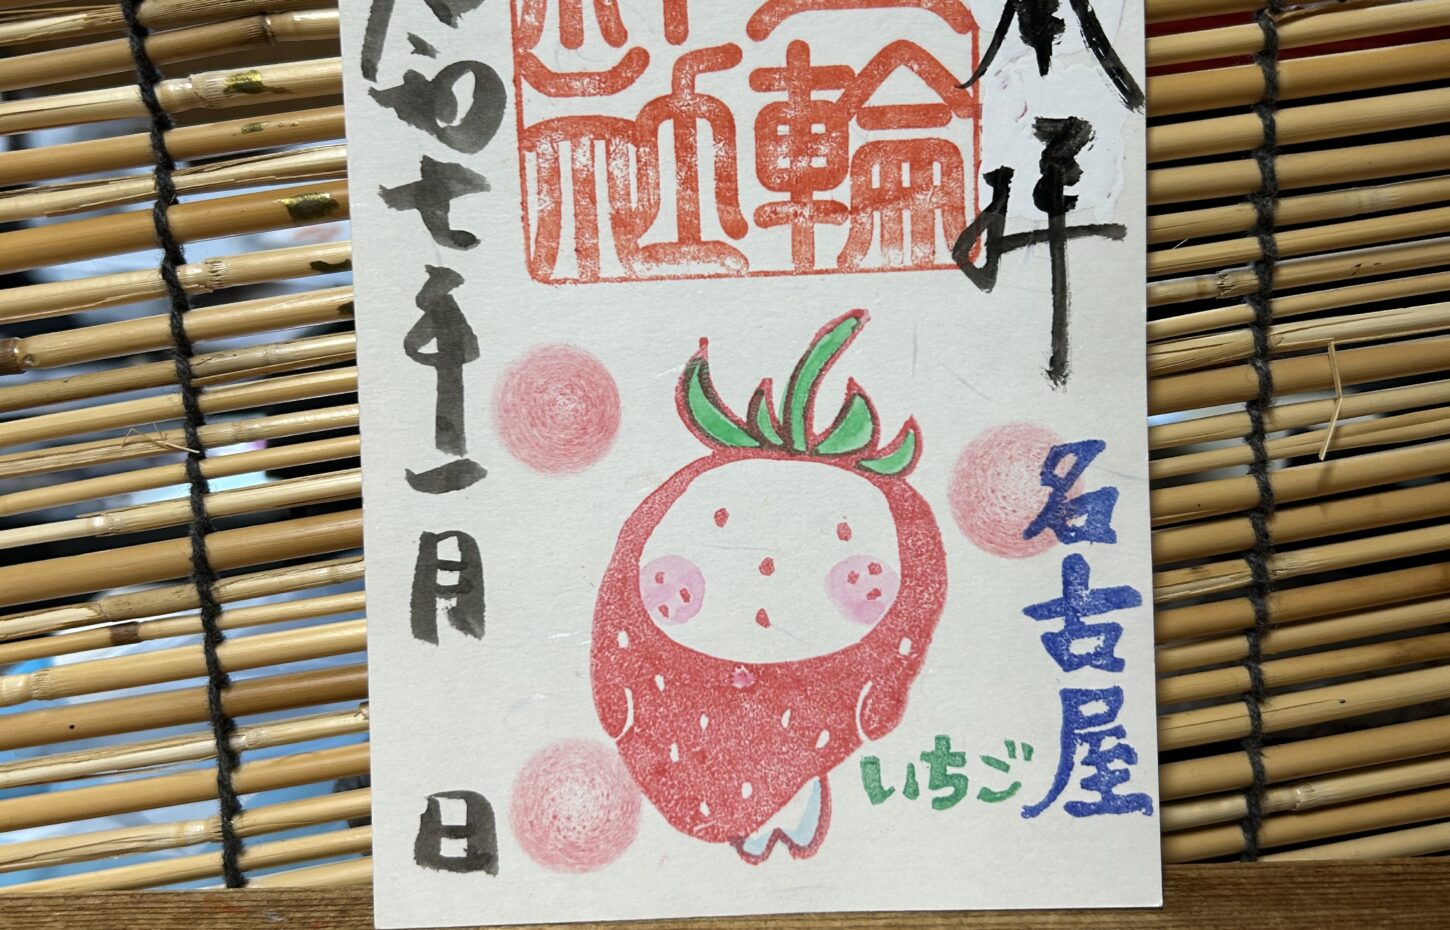 奉拝
名古屋
いちご
輪
社
令和七年一月　日